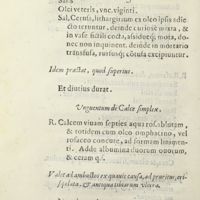 Olei veteris, unc. viginti.
Sal, Cerusa, lithargirium ex oleo ipsis adie
cto teruntur, deinde curiose mota, &
in vase fictili cocta, assiduéque, mota, do-
nec non inquinent, deinde in mortario
transfusa, rursusque, cotusa excipiuntur.
Idem præstat, quod superius.
Et diutius durat.
Unguentum de Calce simplex.
R. Calcem vivam septies aqua rosa ablutam,
& totidem cum oleo omphacino, vel
rosaceo concute, ad formam linimen-
ti. Adde albumina duorum ovorum,
& ceram q. s.
Valet ad ambustos ex quavis causa, ad pruritus, eri-
sipelata, & antiqua tibiarum ulcera.